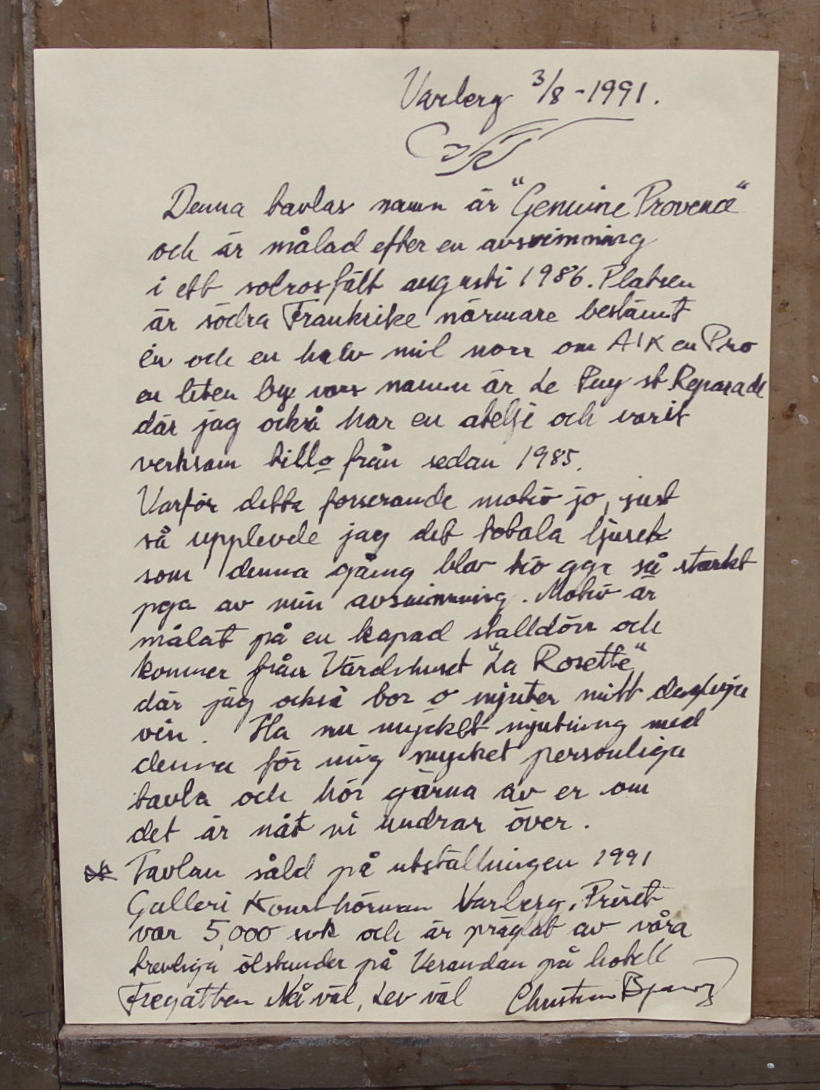 Varberg 3/8 - 1991.
Denna tavlas namn är "Genuine Provence"
och är målad efter en avsvimning
i ett solrosfält augusti 1986. Platsen
är södra Frankrike närmare bestämt
en och en halv mil norr om AIX en Pro
en liten by vars namn är Le Puy st Reparade
där jag också har en ateljé och varit
verksam till o från sedan 1985.
Varför detta forserande motiv jo, just
så upplevde jag det totala ljuset
som denna gång blev tio ggr så starkt
pga av min avsvimning. Motiv är
målat på en kapad stalldörr och
kommer från Värdshuset "La Rosette"
där jag också bor o njuter mitt dagliga
vin. Ha nu mycket njutning med
denna för mig mycket personliga
tavla och hör gärna av er om
det är nåt ni undrar över.
Tavlan såld på utställningen 1991
Galleri Konsthörnan Varberg. Priset
var 5,000 svk och är präglat av våra
trevliga ölstunder på Verandan på hotell
Fregatten Nå väl, Lev väl Christian